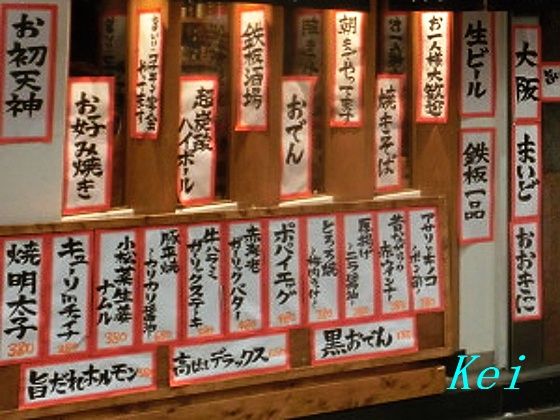 お初天神
お好み焼き
朝までやってます
超炭酸ハイボール
鉄板酒場
おでん
焼きそば
お一人様大歓迎
生ビール
鉄板一品
大阪
まいど
おおきに
焼明太子 380
キューリinチャイナ
小松菜生姜ナムル 380
豚平焼
牛ハラミガーリックステーキ
赤海老ガーリックバター
ポパイエッグ
とろろ焼
厚揚げニラ醤油
昔ながらの赤ウインナー 380
アサリキノコポン酢 380
旨だれホルモン
デラックス
黒おでん
Kei